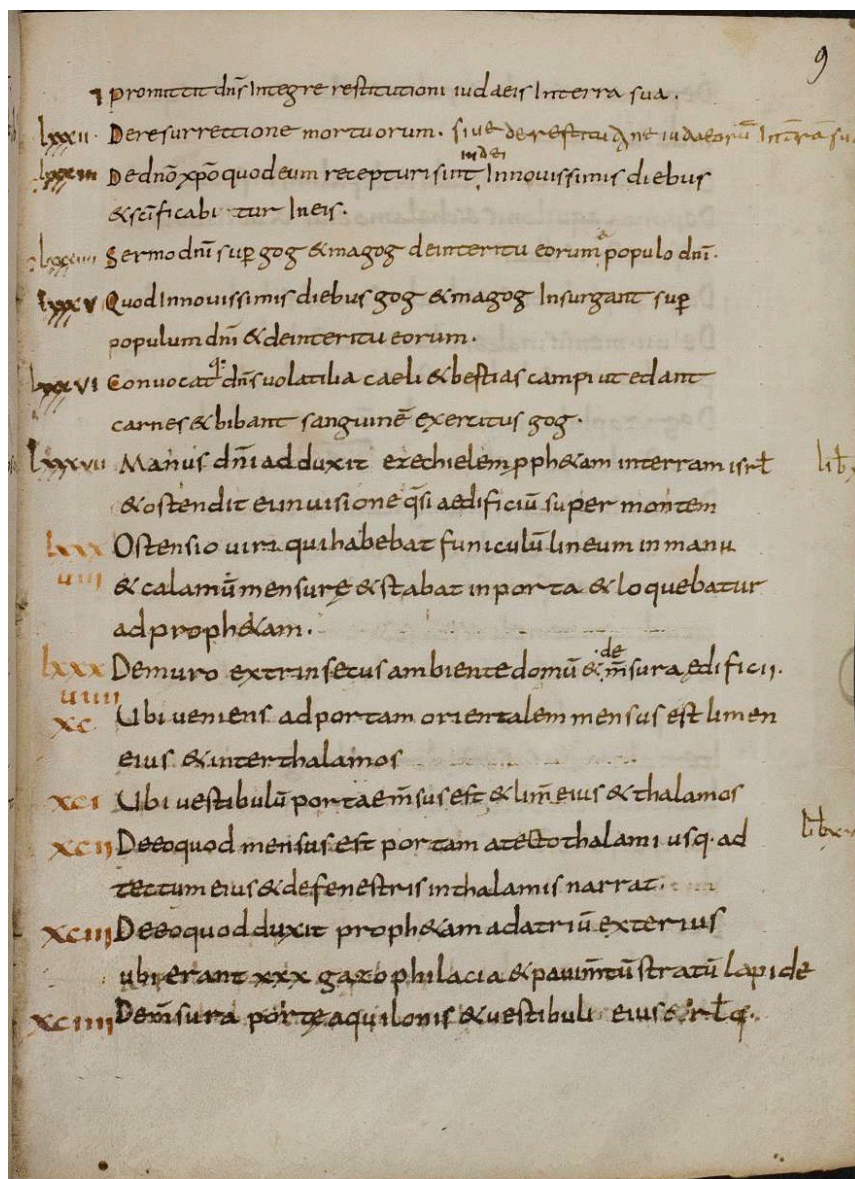 9
⁊ promittit dñs Integre restitutioni iudaeis Interra sua.
lxxxii. Deresurrectione mortuorum. sive derestitutione iudaeorū Interra su
lxxxiii Dedñō xp̄o quodeum recepturi sint Innouissimis diebus
&sc̄ificabitur Ineis.
lxxxiiii Sermo dnī sup gog & magog deinteritu eorum a populo dnī.
lxxxv Quod Innouissimis diebus gog & magog Insurgant sup
populum dnī & deinteritu eorum.
lxxxvi Conuocat dñs uolatilia caeli & bestias campi ut edant
carnes & bibant sanguinē exercitus gog.
lxxxvii Manus dnī adduxit ezechielem pph&am interram isrł
lib
&ostendit ei inuisione q̄si aedificiū super montem
lxxx Ostensio uiri quihabebat funiculū lineum in manu
uiii & calamū mensurę & stabat in porta & loquebatur
adproph&am.
lxxx Demuro extrinsecus ambiente domū & de m̄sura edificii.
uiiii
xc. Ubi ueniens ad portam orientalem mensus est limen
eius & interthalamos
xci Ubi uestibulū portae m̄sus est & lim̄ eius & thalamos
xcii Deeoquod mensus est portam atecto thalami usq. ad
tectum eius & defenestris inthalamis narrat.
xciii Deeoquod duxit proph&am adatriū exterius
ubierant xxx gazophilacia & pauim̄tū stratū lapide
xciiii Dem̄sura porte aquilonis & uestibuli eius & rłq.